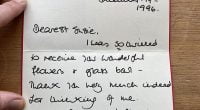 1996.
Dearest Susie,
I was so thrilled
to receive your wonderful
flowers & glass bowl -
Thank you very much indeed
for thinking of me